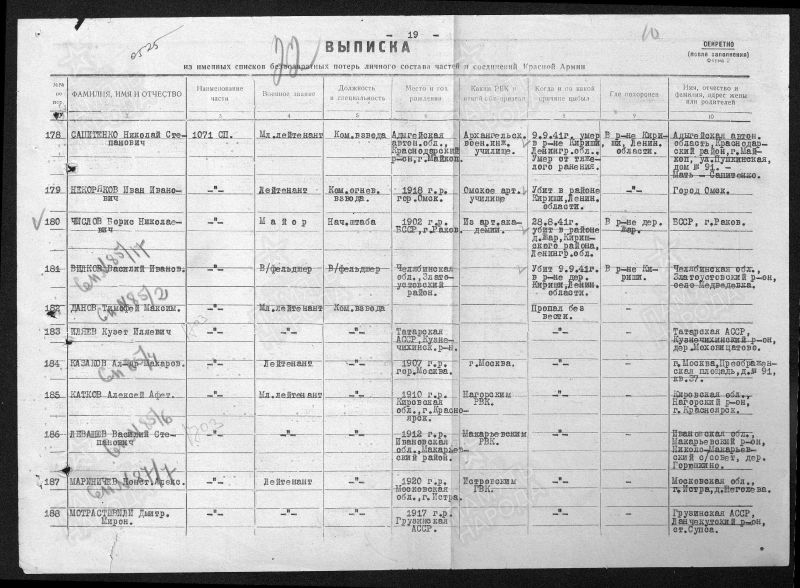 - 19 -
0525
22
10
ВЫПИСКА
СЕКРЕТНО
(после заполнения)
из именных списков безвозвратных потерь личного состава частей и соединений Красной Армии
ФАМИЛИЯ, ИМЯ И ОТЧЕСТВО
Наименование части
Военное звание
Должность и специальность
Место и год рождения
Каким РВК и
Когда и по какой причине выбыл
Где похоронен
Имя, отчество и фамилия, адрес жены или родителей
2 3 4 5 6 7 8 9 10
178 САПИТЕНКО Николай Сте- 1071 СП. Мл.лейтенант Ком.взвода Адыгейская Архангельск. 9.9.41г. умер В р-не Кири- Адыгейская автон.
панович автон.обл., воен.инж. в р-не Кириши, ши, Ленин. область, Краснодар-
Краснодарский училище. Ленингр.обл. области. ский район, г.Май-
р-он, г.Майкоп. Умер от тяже- коп, ул.Пушкинская,
лого ранения. дом № 91. -
Мать - Сапитенко.
179 НЕКОРЯКОВ Иван Ивано- -"- Лейтенант Ком.огнев. 1918 г.р. Омское арт. Убит в районе -"- Город Омск.
вич взвода. гор.Омск. училище Кириши,Ленин.
области.
180 ЧИСЛОВ Борис Николае- -"- Майор Нач.штаба 1902 г.р. Из арт.ака- 28.8.41г. В р-не дер. БССР, г.Рахов.
вич БССР, г.Рахов. демии. убит в районе Жар.
д.Жар,Кириш-
ского района,
Ленингр.обл.
181 ВИДКОВ Василий Иванов. -"- В/фельдшер В/фельдшер Челябинская Убит 9.9.41г. В р-не Ки- Челябинская обл.,
обл., Злато- в р-не дер. риши. Златоустовский р-он,
устовский Кириши,Ленин. село Медведевка.
район. области.
182 ДАНОВ Тимофей Максим. -"- Мл.лейтенант Ком.взвода Пропал без -
вести.
183 ИЛЯЕВ Кузет Иляевич -"- -"- -"- Татарская -"- - Татарская АССР,
АССР,Кузне- Кузнечихинский р-он,
чихинск.р-н. дер.Моховицатово.
184 КАЗАКОВ Ал-др Макаров. -"- Лейтенант -"- 1907 г.р. г.Москва. -"- - г.Москва,Преображен-
гор.Москва. ская площадь,д.№ 91,
кв.37.
185 КАТКОВ Алексей Афет. -"- Мл.лейтенант -"- 1910 г.р. Нагорским -"- - Кировская обл.,
Кировская РВК. Нагорский р-он,
обл.,г.Красно- г.Красноярск.
ярск.
186 ЛЕВАШЕВ Василий Сте- -"- -"- -"- 1912 г.р. Макарьевским -"- - Ивановская обл.,
панович Ивановская РВК. Макарьевский р-он,
обл.,Макарьев- Николо-Макарьев-
ский район. ский с/совет, дер.
Горюшкино.
187 МАРИНИЧЕВ -"- Лейтенант -"- 1920 г.р. Истровским -"- - Московская обл.,
Московская РВК. г.Истра,д.Неголева.
обл.,г.Истра.
188 МОТРАСТВИЛИ Дмитр. -"- -"- -"- 1917 г.р. -"- - Грузинская АССР,
Мирон. Грузинская Ланчхутский р-он,
АССР. ст.Супса.